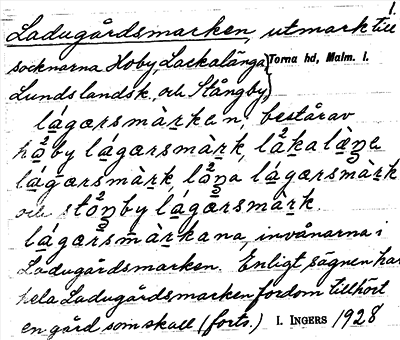 1.
Ladugårdsmarken, utmark till
socknarna Hoby, Lackalänga
Torna hd, Malm. l.
Lunds landsk. och Stångby,
lágærsmàrken, består av
hǫby lágærsmàrk, lákalæŋa
lágærsmàrk, lóŋa lágærsmàrk
och stóŋby lágærsmàrk
lágærsmàrkana, invånarna i
Ladugårdsmarken. Enligt sägnen har
hela Ladugårdsmarken fordom tillhört
en gård som skall (forts.) I. INGERS 1928